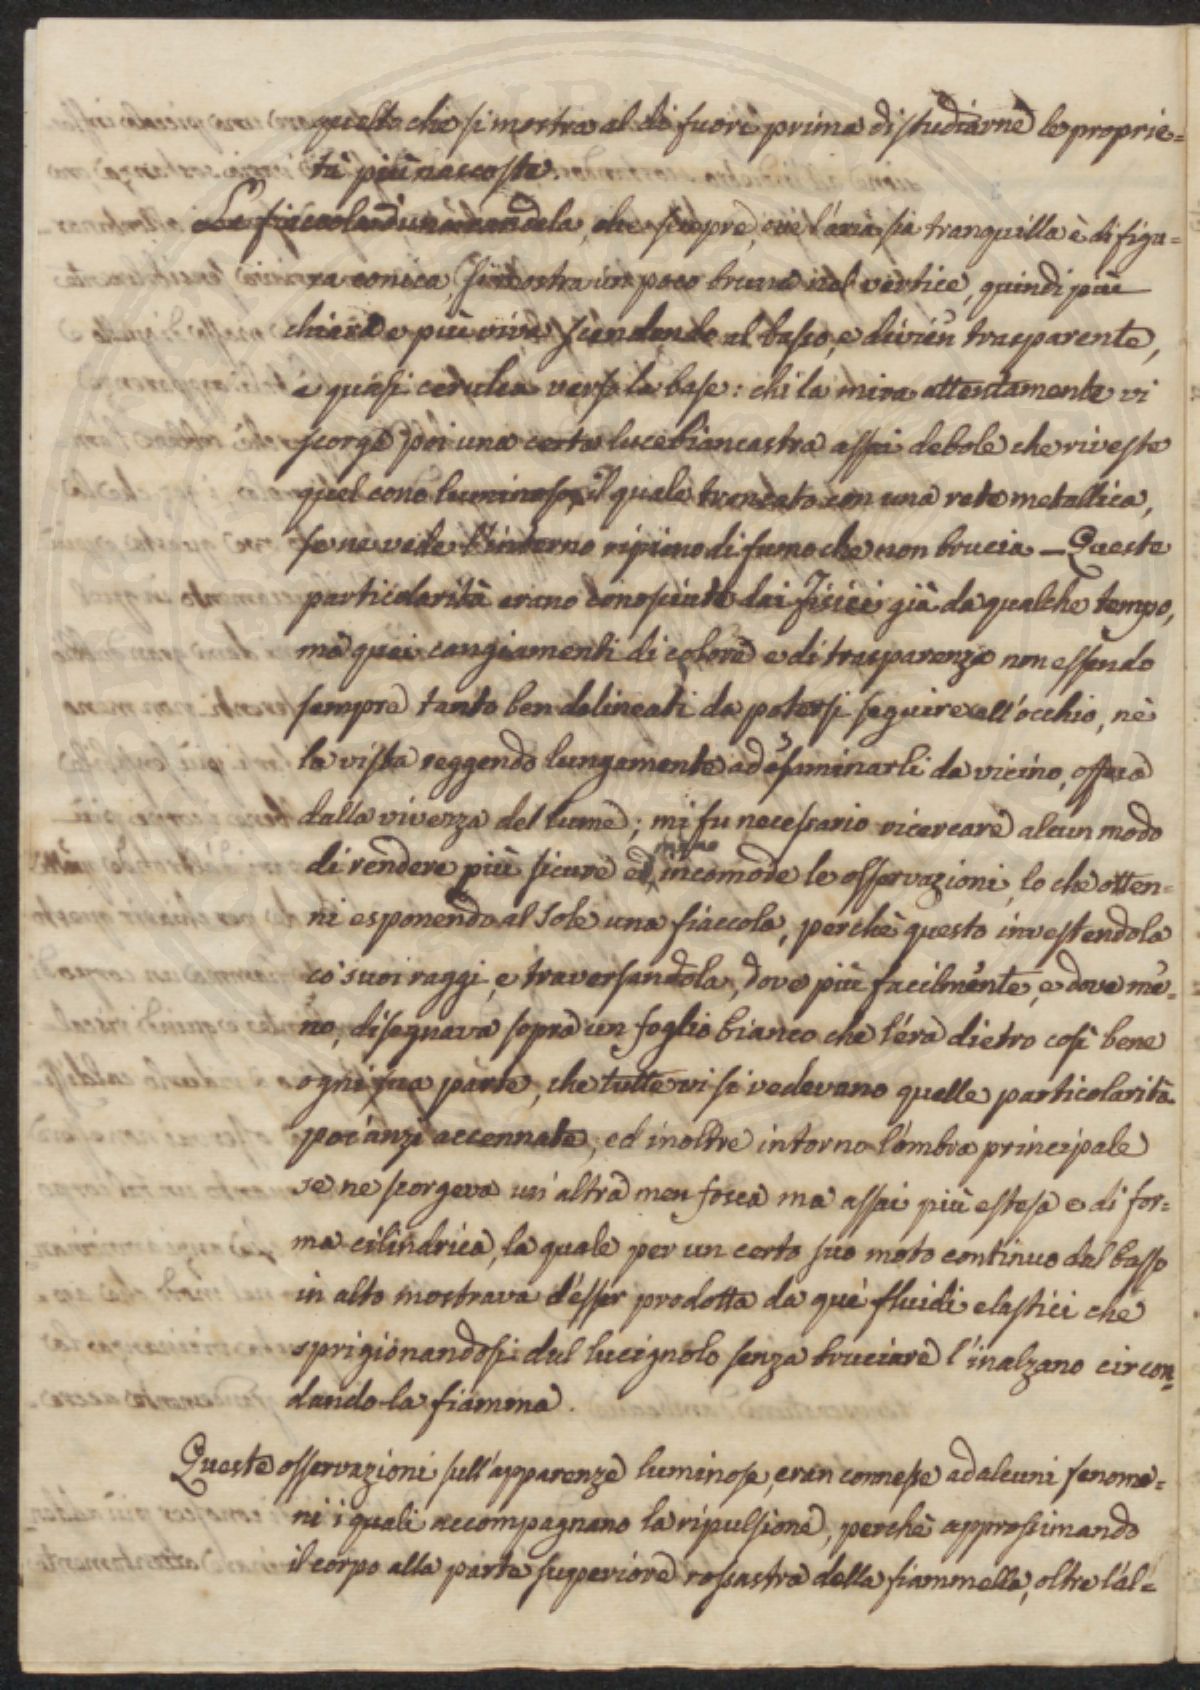 quello che si mostra al di fuori prima di studiarne le proprie=
tà più nascoste.
La fiaccola d'una candela, che sempre, ove l'aria sia tranquilla è di figu=
ra conica, si mostra un poco bruna nel vertice, quindi più
chiara e più viva scendendo al basso, e divien trasparente,
e quasi cerulea verso la base: chi la mira attentamente vi
scorge poi una certa luce biancastra assai debole che riveste
quel cono luminoso, il quale troncato con una rete metallica,
se ne vede l'interno ripieno di fumo che non brucia — Queste
particolarità erano conosciute dai Fisici già da qualche tempo,
ma quei cangiamenti di colore e di trasparenza non essendo
sempre tanto ben delineati da potersi seguire all'occhio, nè
la vista reggendo lungamente ad esaminarli da vicino, offesa
dalla vivezza del lume; mi fu necessario ricercare alcun modo
di rendere più sicure ed meno incomode le osservazioni, lo che otten=
ni esponendo al Sole una fiaccola, perchè questo investendola
co' suoi raggi, e traversandola, dove più facilmente, e dove me=
no, disegnava sopra un foglio bianco che l'era dietro così bene
ogni sua parte, che tutte vi si vedevano quelle particolarità
poc'anzi accennate; ed inoltre intorno l'ombra principale
se ne scorgeva un'altra men fosca ma assai più estesa e di for=
ma cilindrica, la quale per un certo suo moto continuo dal basso
in alto mostrava d'esser prodotta da que' fluidi elastici che
sprigionandosi dal lucignolo senza bruciare l'inalzano circon=
dando la fiamma.
Queste osservazioni sull'apparenze luminose, eran connesse ad alcuni fenome=
ni i quali accompagnano la ripulsione, perchè approssimando
il corpo alla parte superiore rossastra della fiammella, oltre l'al=